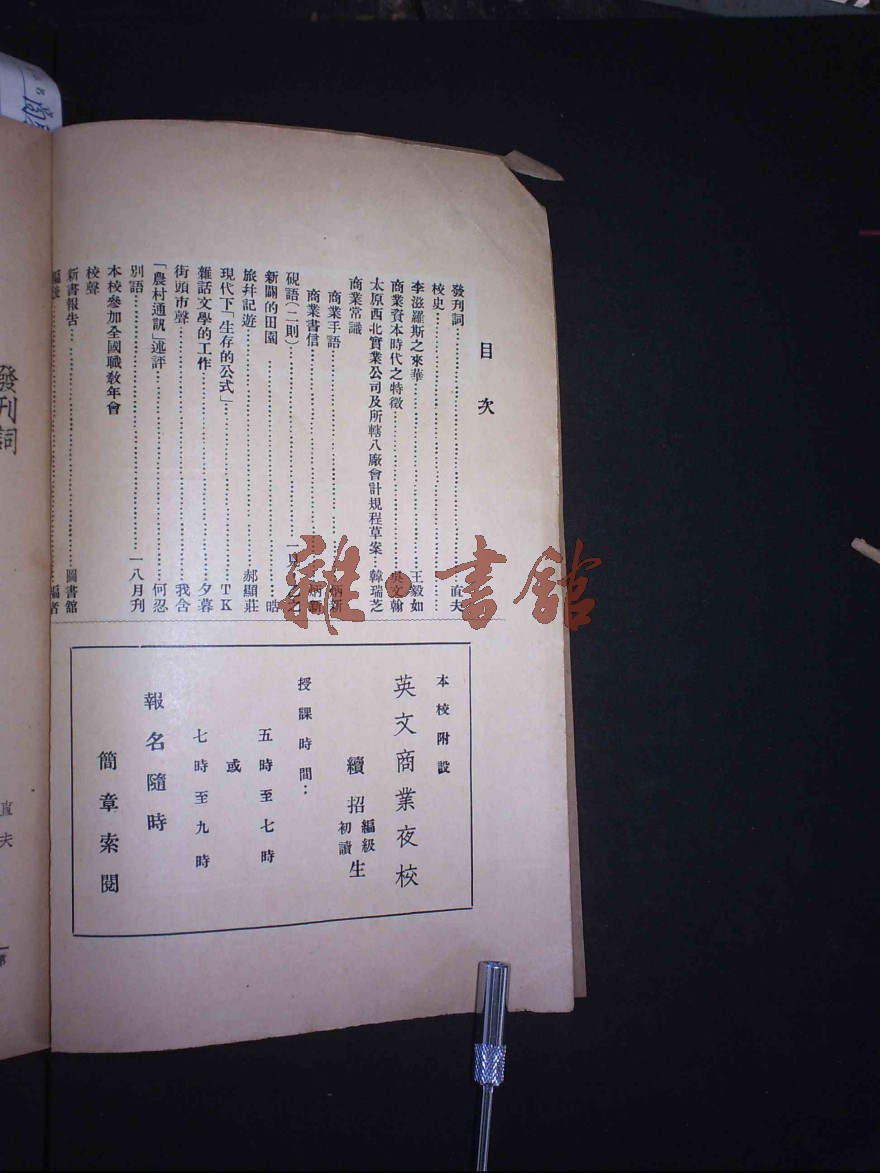 目次
發刊詞……直夫
校史……
李滋羅斯之來華……王毅如
商業資本時代之特徵……吳文翰
太原西北實業公司及所轄八廠會計規程草案…韓瑞芝
商業常識
商業手語……炳新
商業書信……炳新
硯語(二則)……
新闢的田園……晧
旅幷記遊……郝顯莊
現代下「生存的公式」……TK
雜話文學的工作……夕暮
街頭市聲……我含
「農村通訊」述評……何忍
別語……一八月刊
本校參加全國職教年會
校聲
新書報告……圖書舘
編後……編者
本校附設
英文商業夜校
續招編級初讀生
授課時間：
五時至七時
或
七時至九時
報名隨時
簡章索閱
發刊詞
直夫
雜·書館